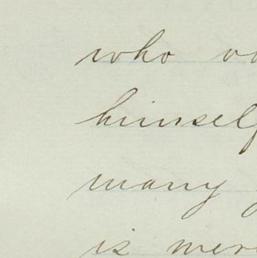 who
himself
many
is